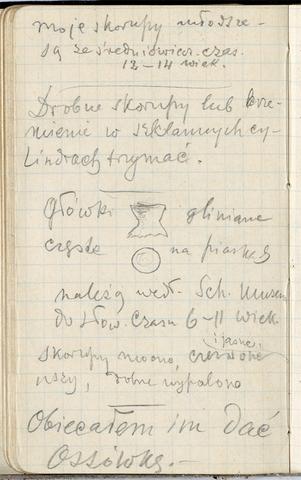 moje skorupy młodsze -
są ze średniowiecz. czas.
12-14 wiek.
Drobne skorupy lub krze-
mienie w szklannych cy-
lindrach trzymać.
Główki gliniane
częste na piaskach
należą wedł. Sch. Museum
do słow. czasu 6-11 wiek.
i jasno
skorupy mocno, czerwone
uszy, dobrze wypalone
Obiecałem im dać
Ossówkę.-